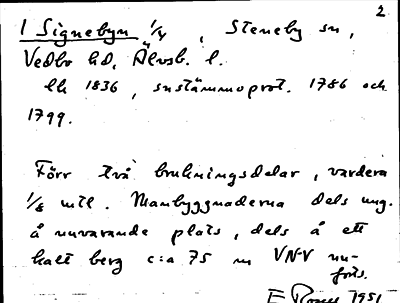 2
1 Signebyn 1/4, Steneby sn,
Vedbo hd, Älvsb. l.
lh 1836, snstämmoprot. 1786 och
1799.
Förr två brukningsdelar, vardera
1/8 mtl. Manbyggnaderna dels ung.
å nuvarande plats, dels å ett
kalt berg c:a 75 m VNV nu-
forts.
1951